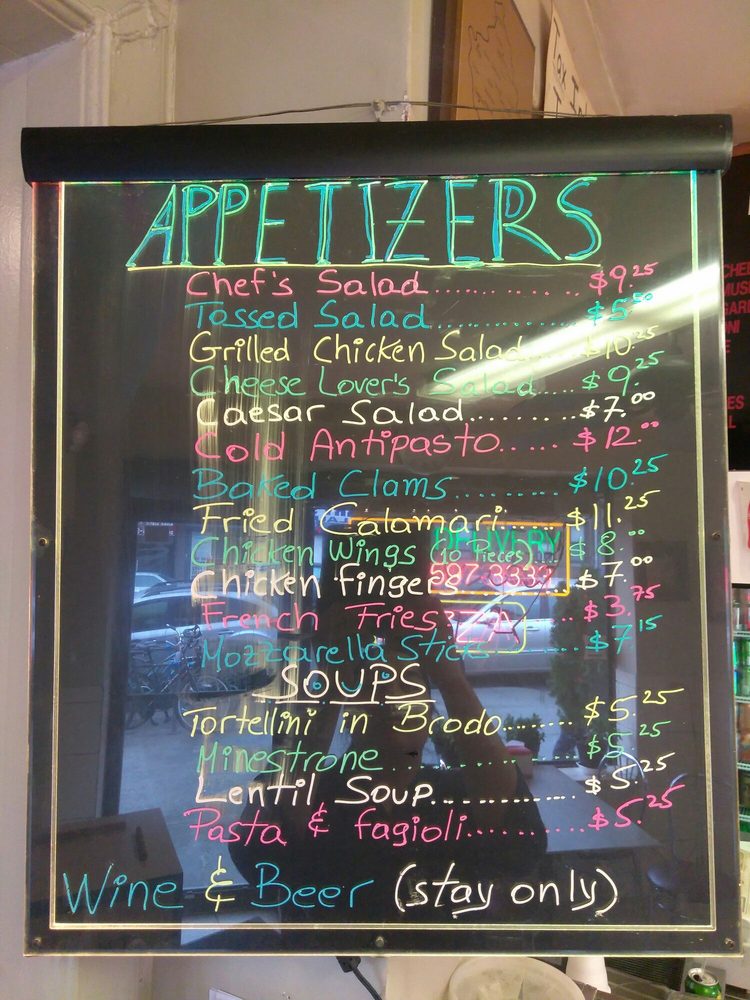 APPETIZERS
Chef's Salad............ $9.25
Tossed Salad............ $5.50
Grilled Chicken Salad..... $10.25
Cheese Lover's Salad..... $9.25
Caesar Salad......... $7.00
Cold Antipasto...... $12.00
Baked Clams......... $10.25
Fried Calamari...... $11.25
Chicken Wings (10 Pieces) $8.00
Chicken fingers......... $7.00
French Fries...... $3.75
Mozzarella Sticks...... $7.15
SOUPS
Tortellini in Brodo....... $5.25
Minestrone............ $5.25
Lentil Soup............ $5.25
Pasta & fagioli.......... $5.25
Wine & Beer (stay only)
DELIVERY
587-3333